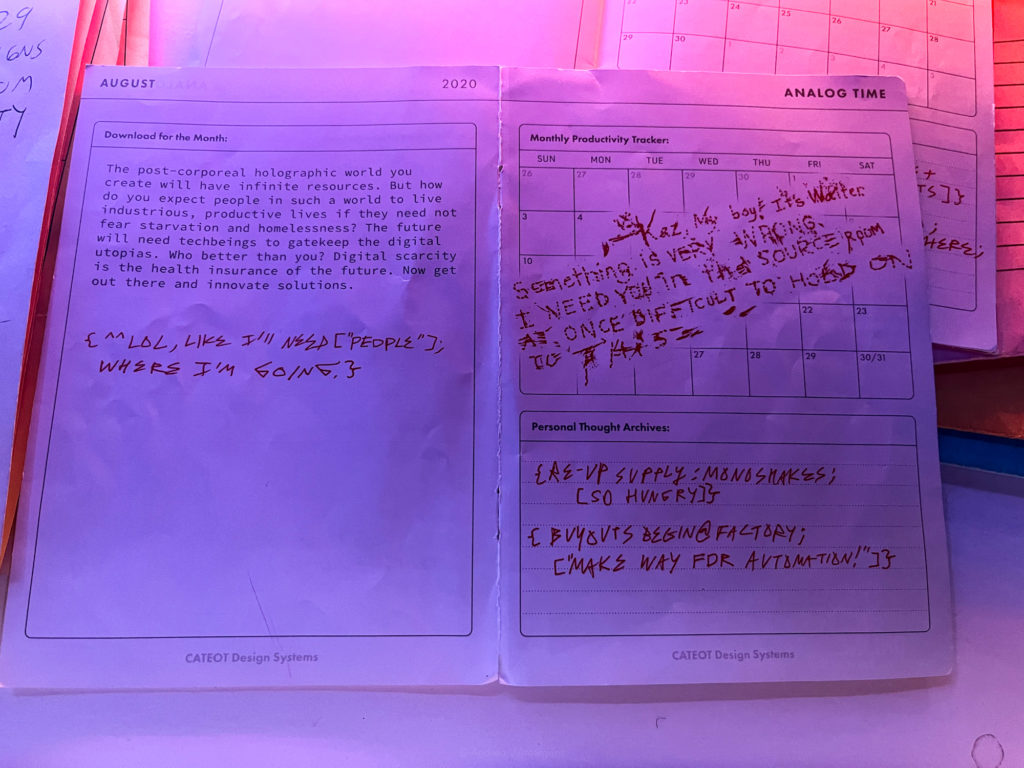 29
IGNS
OM
TY
AUGUST 2020
Download for the Month:
The post-corporeal holographic world you
create will have infinite resources. But how
do you expect people in such a world to live
industrious, productive lives if they need not
fear starvation and homelessness? The future
will need techbeings to gatekeep the digital
utopias. Who better than you? Digital scarcity
is the health insurance of the future. Now get
out there and innovate solutions.
{^^LOL, LIKE I'll NEED ["PEOPLE"];
WHERE I'M GOING.}
CATEOT Design Systems
ANALOG TIME
Monthly Productivity Tracker:
SUN MON TUE WED THU FRI SAT
26 27 28 29 30 1
3 4
10
22 23
27 28 29 30/31
Kaz, My boy! It's Walter.
Something is VERY WRONG.
I NEED YOU in the SOURCE ROOM
AT ONCE DIFFICULT TO HOLD ON
TO THIS
Personal Thought Archives:
{RE-UP SUPPLY: MONOSHAKES;
[SO HUNGRY]}
{BUYOUTS BEGIN@FACTORY;
["MAKE WAY FOR AUTOMATION!"]}
CATEOT Design Systems
22 23 24 25 26 27 28
29 30
HERE;